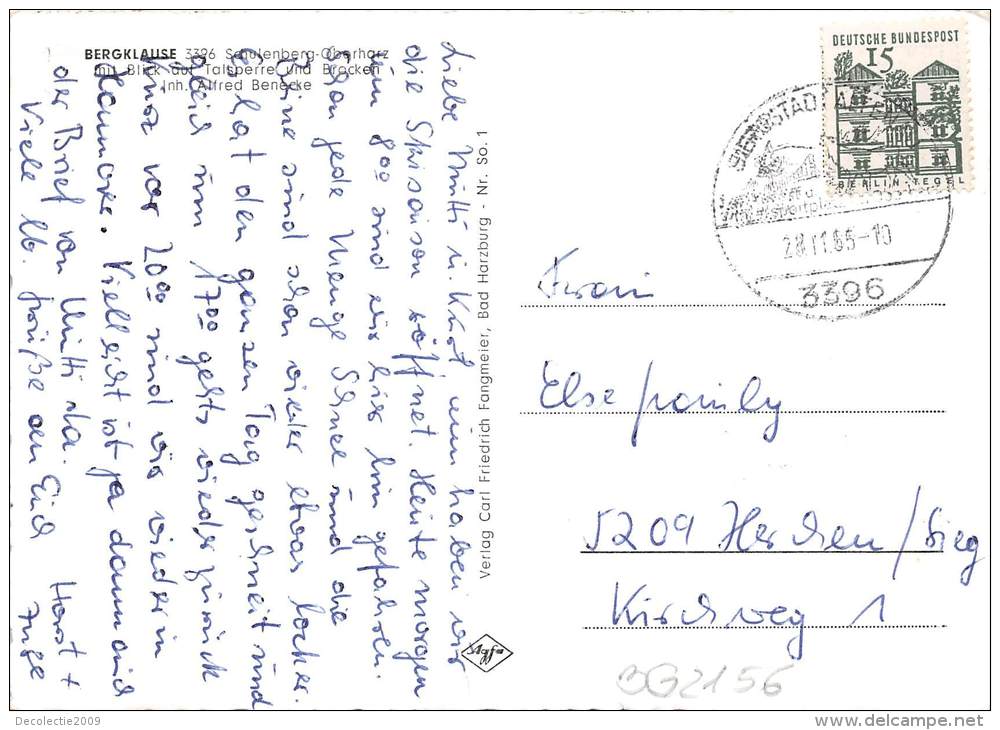 BERGKLAUSE 3396 Schulenberg-Oberharz
mit Blick auf Talsperre und Brocken
Inh. Alfred Benecke
Liebe Mutti u. Kurt, nun haben wir
die Skisaison eröffnet. Heute morgen
um 8°° sind wir hier hin gefahren.
Schon jede Menge Schnee und die
Beine sind schon wieder etwas locker.
Es hat den ganzen Tag geschneit und
gleich um 17°° gehts wieder zurück
kurz vor 20°° sind wir wieder in
Hannover. Vielleicht ist ja dann auch
der Brief von Mutti da.
Viele lb. Grüße an Euch
Horst +
Inge
Verlag Carl Friedrich Fangmeier, Bad Harzburg - Nr. So. 1
Agfa
DEUTSCHE BUNDESPOST
15
BERLIN TEGEL
28.11.65-10
3396
Frau
Else
5209 Herchen/Sieg
Kirchweg 1
BG2156
Decolectie2009
www.delcampe.net